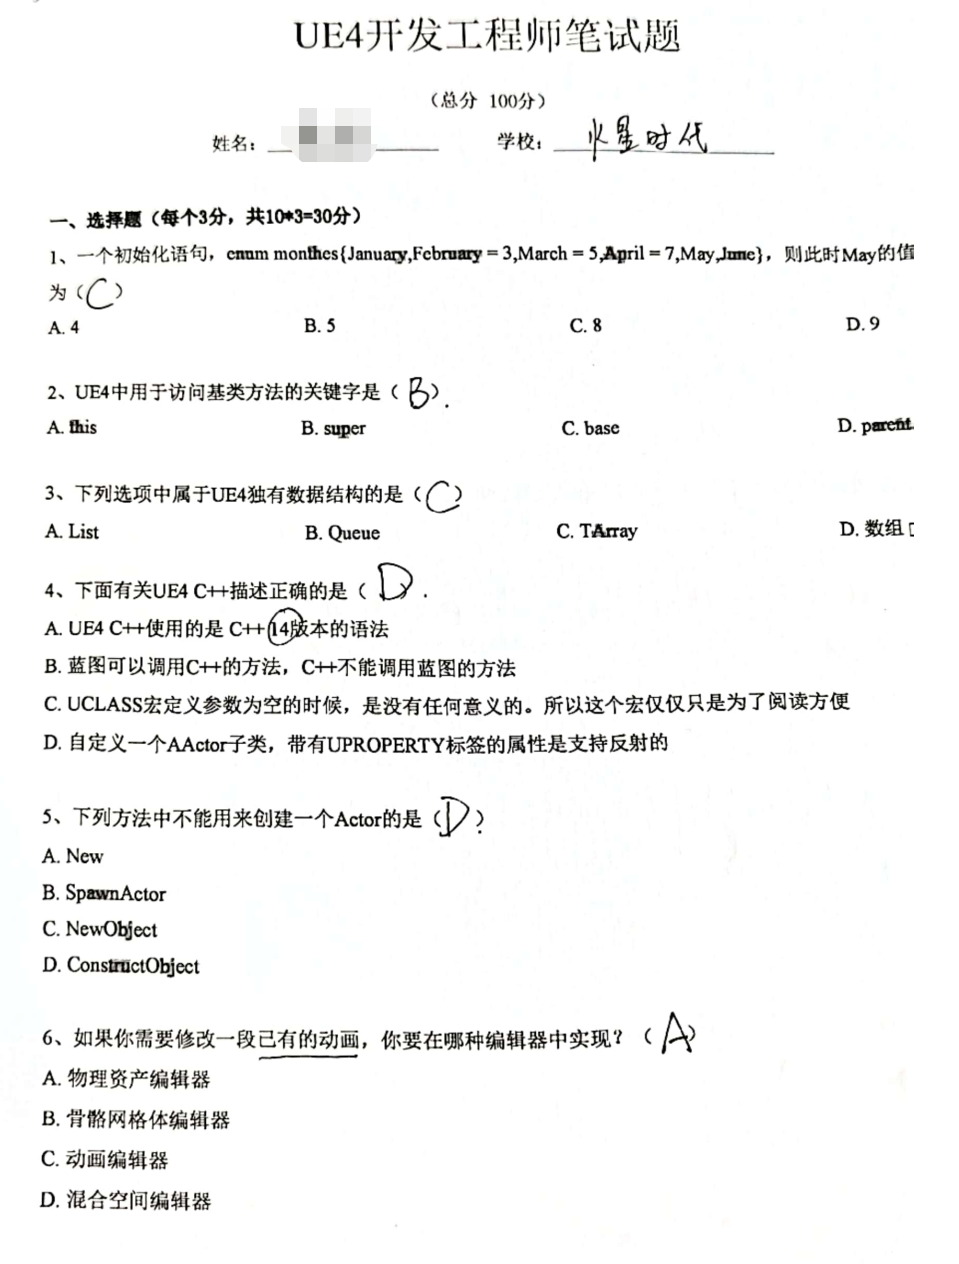 UE4开发工程师笔试题
（总分 100分）
姓名： 学校：火星时代
一、选择题（每个3分，共10*3=30分）
1、一个初始化语句，enum monthes{January,February = 3,March = 5,April = 7,May,June}，则此时May的值
为（C）
A. 4 B. 5 C. 8 D. 9
2、UE4中用于访问基类方法的关键字是（B）.
A. this B. super C. base D. parent.
3、下列选项中属于UE4独有数据结构的是（C）
A. List B. Queue C. TArray D. 数组
4、下面有关UE4 C++描述正确的是（D）.
A. UE4 C++使用的是 C++ 14版本的语法
B. 蓝图可以调用C++的方法，C++不能调用蓝图的方法
C. UCLASS宏定义参数为空的时候，是没有任何意义的。所以这个宏仅仅只是为了阅读方便
D. 自定义一个AActor子类，带有UPROPERTY标签的属性是支持反射的
5、下列方法中不能用来创建一个Actor的是（D）?
A. New
B. SpawnActor
C. NewObject
D. ConstructObject
6、如果你需要修改一段已有的动画，你要在哪种编辑器中实现？（A）
A. 物理资产编辑器
B. 骨骼网格体编辑器
C. 动画编辑器
D. 混合空间编辑器